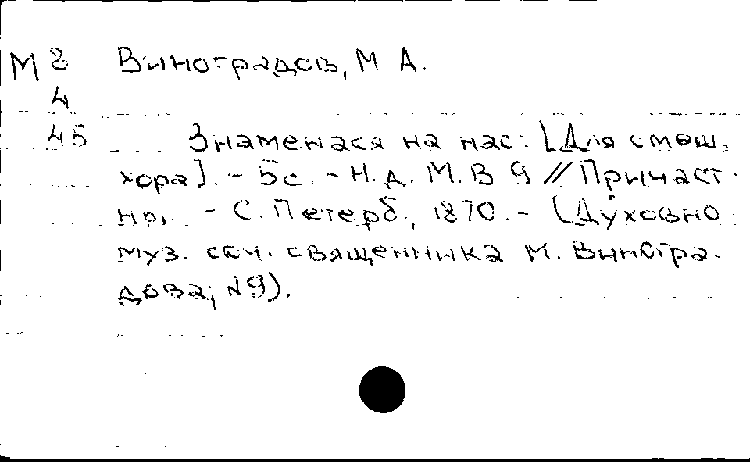 М 2 Виноградов, М А.
4
45 Знаменася на нас: [Для смеш.
хора]. - Б с. - Н.д. М.В 9 // Причаст-
ны. - С. Петерб., 1870. - (Духовно
муз. соч. священника М. Виногра-
дова; №9).